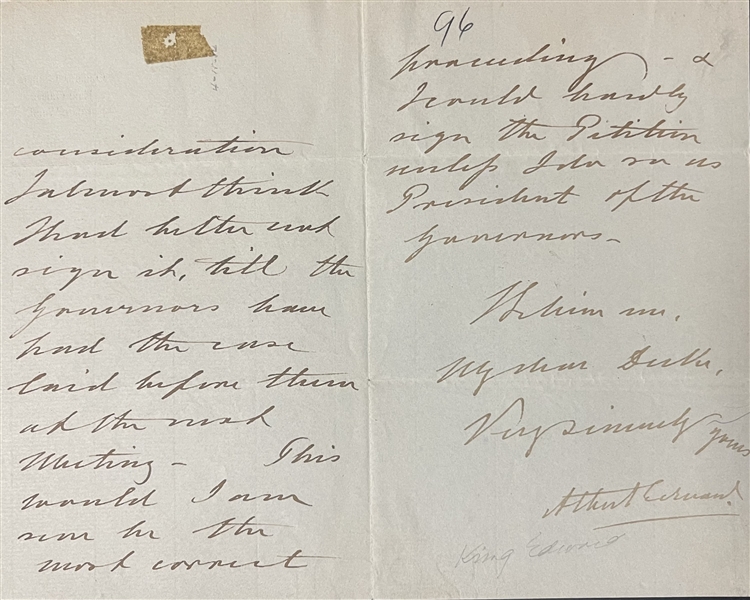 consideration
I almost think
I had better not
sign it, till the
Governors have
had the case
laid before them
at the next
Meeting – This
would I am
sure be the
most correct
96
proceeding – &
I could hardly
sign the Petition
unless I do so as
President of the
Governors –
Believe me,
My dear Duke,
Very sincerely yours
Albert Edward.
King Edward